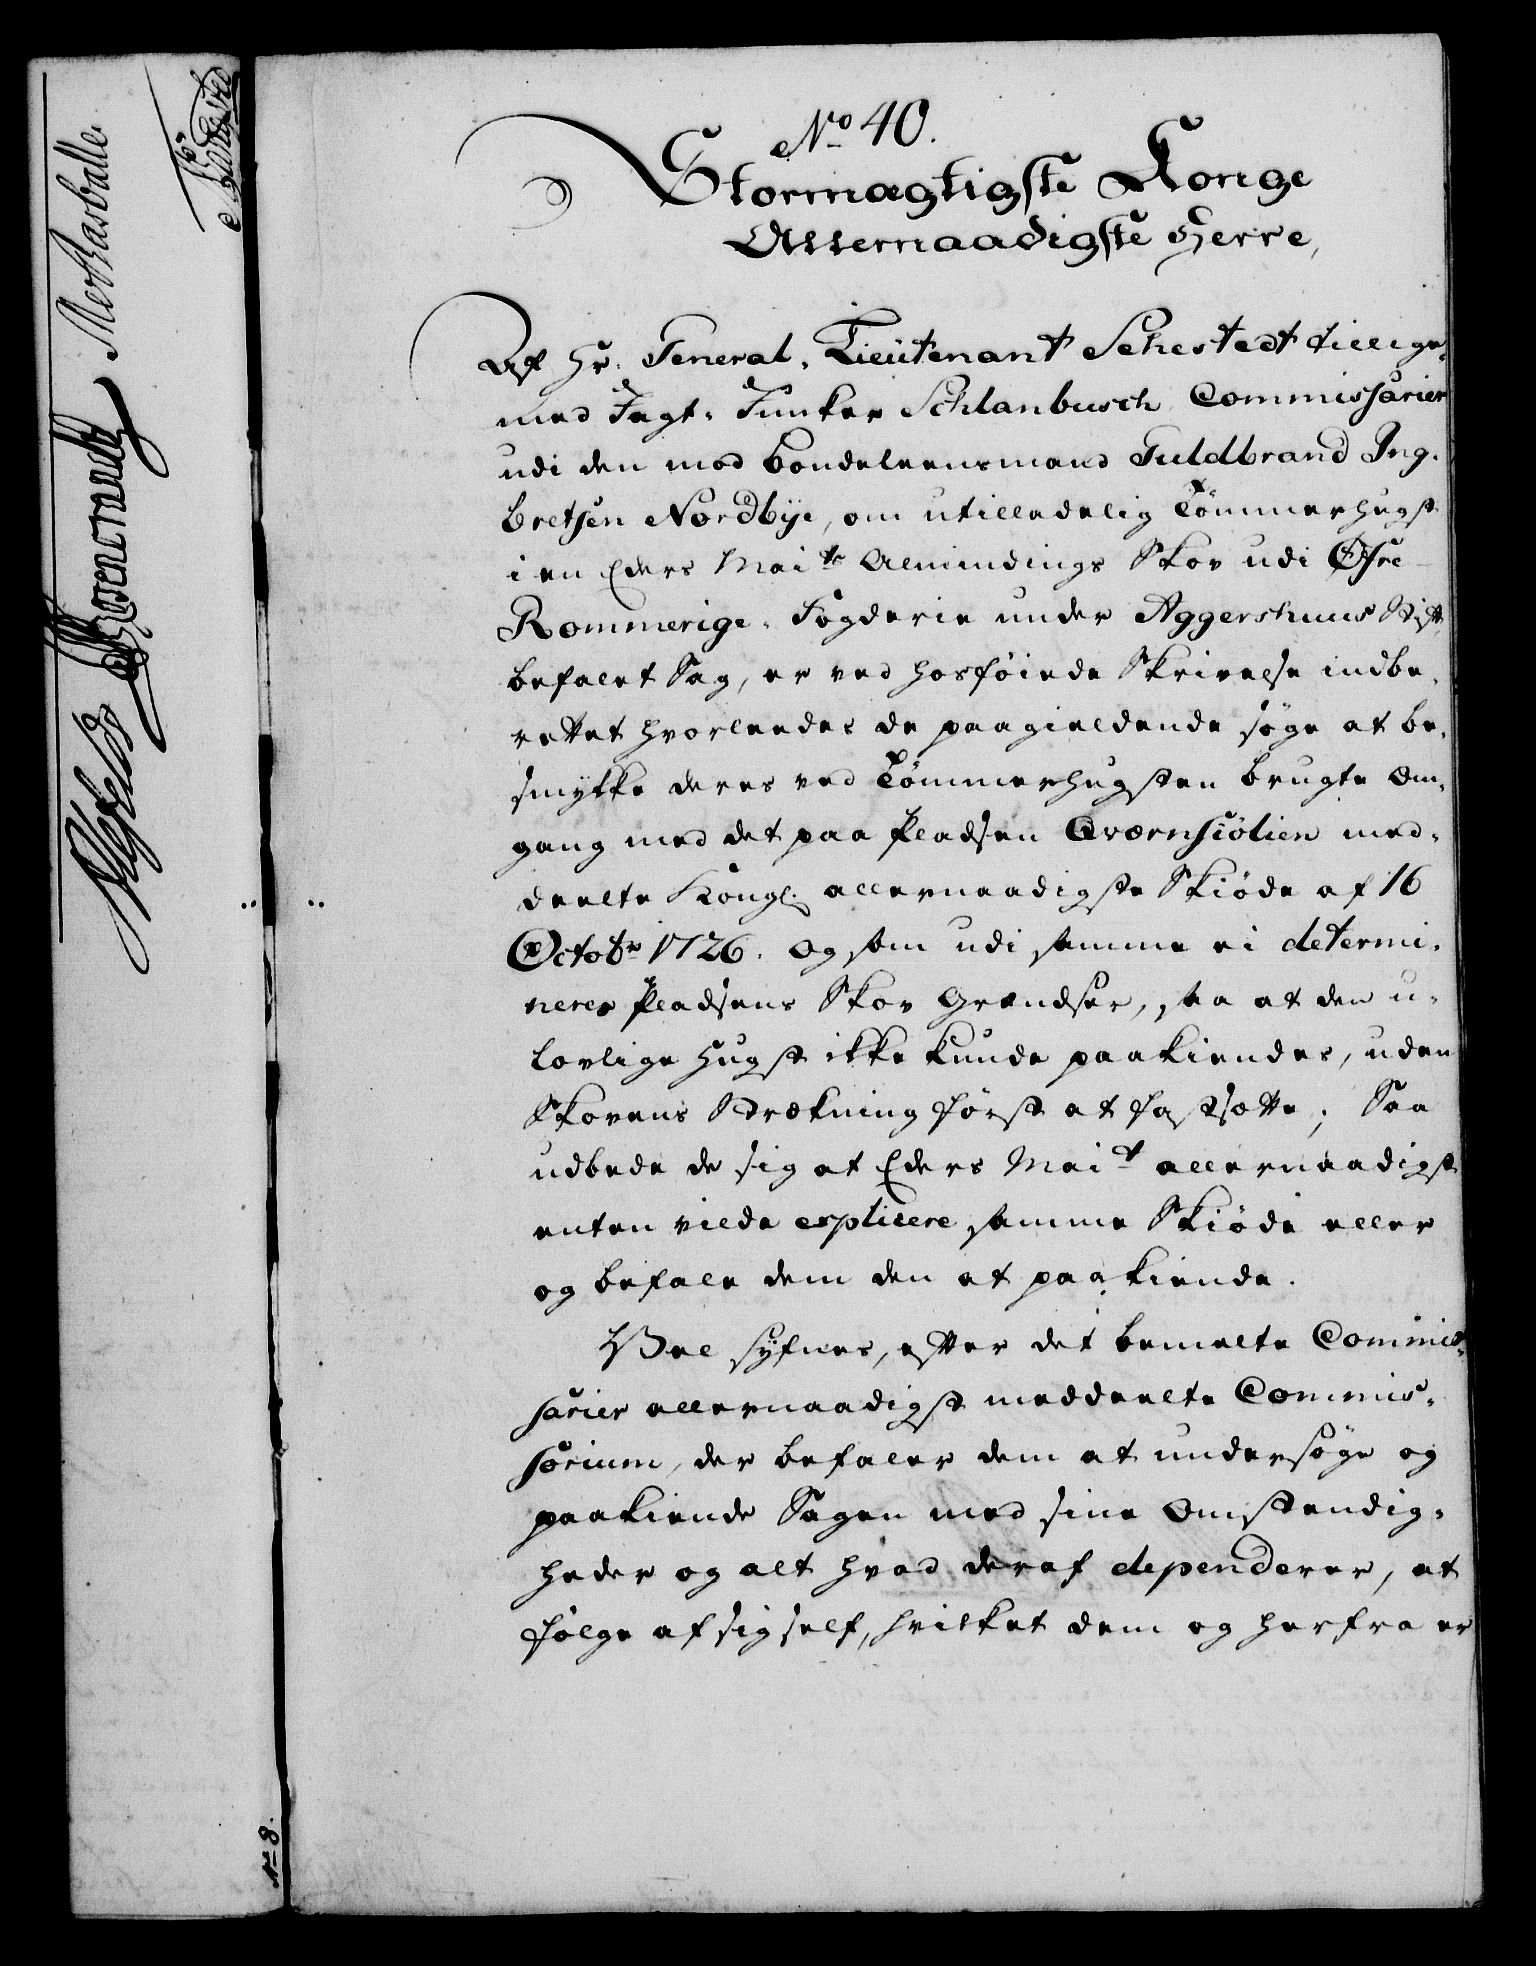 No 40.
Stormægtigste Konge
Allernaadigste Herre,
Af Hr. General-Lieutenant Sehestedt tillige-
med Jagt-Junker Schlanbusch Commissarier
udi den mod bondeleensmand Guldbrand Ing-
bretsen Nordbÿe, om utilladelig Tømmerhugst
i en Eders Maits Almindings Skov udi Øfre
Rommerige-Fogderie under Aggershuus Stift
befalet Sag, er ved hosføiede Skrivelse indbe-
rettet hvorledes de paagieldende søge at be-
smykke deres ved Tømmerhugsten brugte Om-
gang med det paa Pladsen Qværnsiölien med-
deelte Kongl. allernaadigste Skiøde af 16
Octobr 1726. og som udi samme ei determi-
neres Pladsens Skov Grændser, saa at den u-
lovlige hugst ikke kunde paakiendes, uden
Skovens Strækning først at fastsætte; Saa
udbede de sig at Eders Mait allernaadigst
enten vilde explicere samme Skiøde eller
og befale dem den at paakiende.
Vel sÿfnes, efter det bemelte Commis-
sarier allernaadigst meddeelte Commis-
sorium, der befaler dem at undersøge og
paakiende Sagen med sine Omstendig-
heder og alt hvad deraf dependerer, at
følge af sig self, hvilket dem og herfra er
No 8.